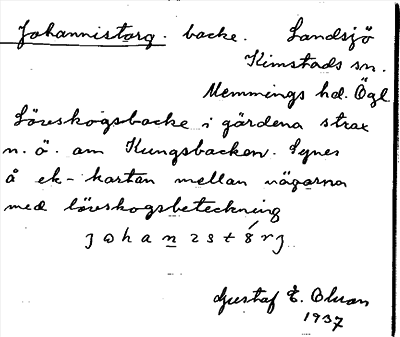 Johannistorg. backe. Landsjö
Kimstads sn.
Memmings hd. Ögl
Lövskogsbacke i gärdena strax
n. ö. om Kungsbacken. Synes
å ek-kartan mellan vägarna
med lövskogsbeteckning
Gustaf E. Olson
1937